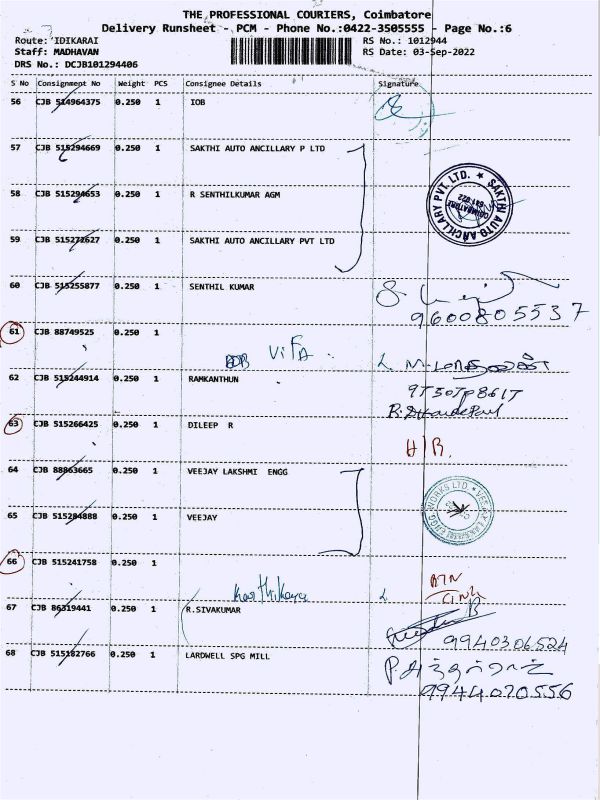 THE PROFESSIONAL COURIERS, Coimbatore
Delivery Runsheet - PCM - Phone No.:0422-3505555 - Page No.:6
Route: IDIKARAI RS No.: 1012944
Staff: MADHAVAN RS Date: 03-Sep-2022
DRS No.: DCJB101294406
S No Consignment No Weight PCS Consignee Details Signature
56 CJB 514964375 0.250 1 IOB
57 CJB 515294669 0.250 1 SAKTHI AUTO ANCILLARY P LTD
SAKTHI AUTO ANCILLARY PVT. LTD. COIMBATORE 641 022
58 CJB 515294653 0.250 1 R SENTHILKUMAR AGM
59 CJB 515272627 0.250 1 SAKTHI AUTO ANCILLARY PVT LTD
60 CJB 515255877 0.250 1 SENTHIL KUMAR
9600805537
61 CJB 88749525 0.250 1
62 CJB 515244914 0.250 1 RAMKANTHUN
63 CJB 515266425 0.250 1 DILEEP R
64 CJB 88863665 0.250 1 VEEJAY LAKSHMI ENGG
65 CJB 515284888 0.250 1 VEEJAY
66 CJB 515241758 0.250 1
67 CJB 86319441 0.250 1 R.SIVAKUMAR
9940306524
68 CJB 515182766 0.250 1 LARDWELL SPG MILL
9944070556